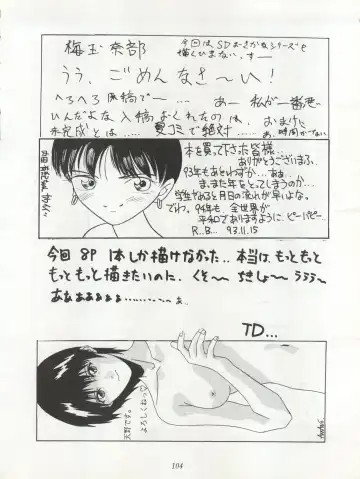 梅玉奈部
今回はSDおーさかなシリーズを
描くひまない、すー
うう、ごめんなさ〜い!
へろへろ原稿で〜……
あー私が一番遅
いんだよな入稿おくれたのは、おまけに
未完成とは……夏コミで絶対……
あ、時間がなーい
本を買って下さた皆様…
ありがとうございまふ。
93年もあとわずか…ああ
まーまた年をとってしまうのか…
学生やめると月日の流れが早いよな。
でわ。94年も全世界が
平和でありますように。ピーパピー
R...B... 93.11.15
今回 8P 1本しか描けなかった…本当は、もっともっと
もっともっと描きたいのに、くそ〜ちきしょ〜ううう〜
ああぁぁぁぁぁ……………ぁ。
TD...
天野です。
よろしくねっ♡
104